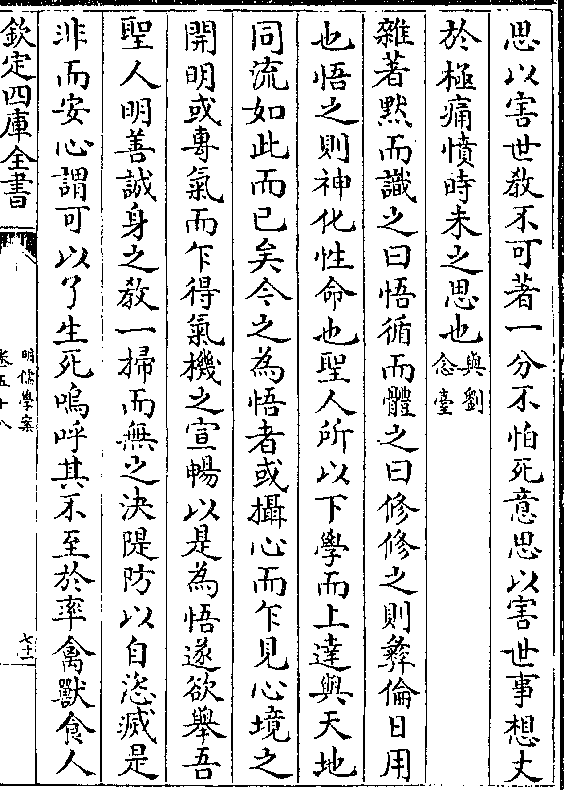 思以害世教不可著一分不怕死意思以害世事想丈
於極痛憤時未之思也與劉念臺
雜著默而識之曰悟循而體之曰修修之則彝倫日用
也悟之則神化性命也聖人所以下學而上達與天地
同流如此而已矣今之為悟者或攝心而乍見心境之
開明或專氣而乍得氣機之宣暢以是為悟遂欲舉吾
聖人明善誠身之教一掃而無之決隄防以自恣滅是
非而安心謂可以了生死嗚呼其不至於率禽獸食人
欽定四庫全書
明儒學案
卷五十八
七十一